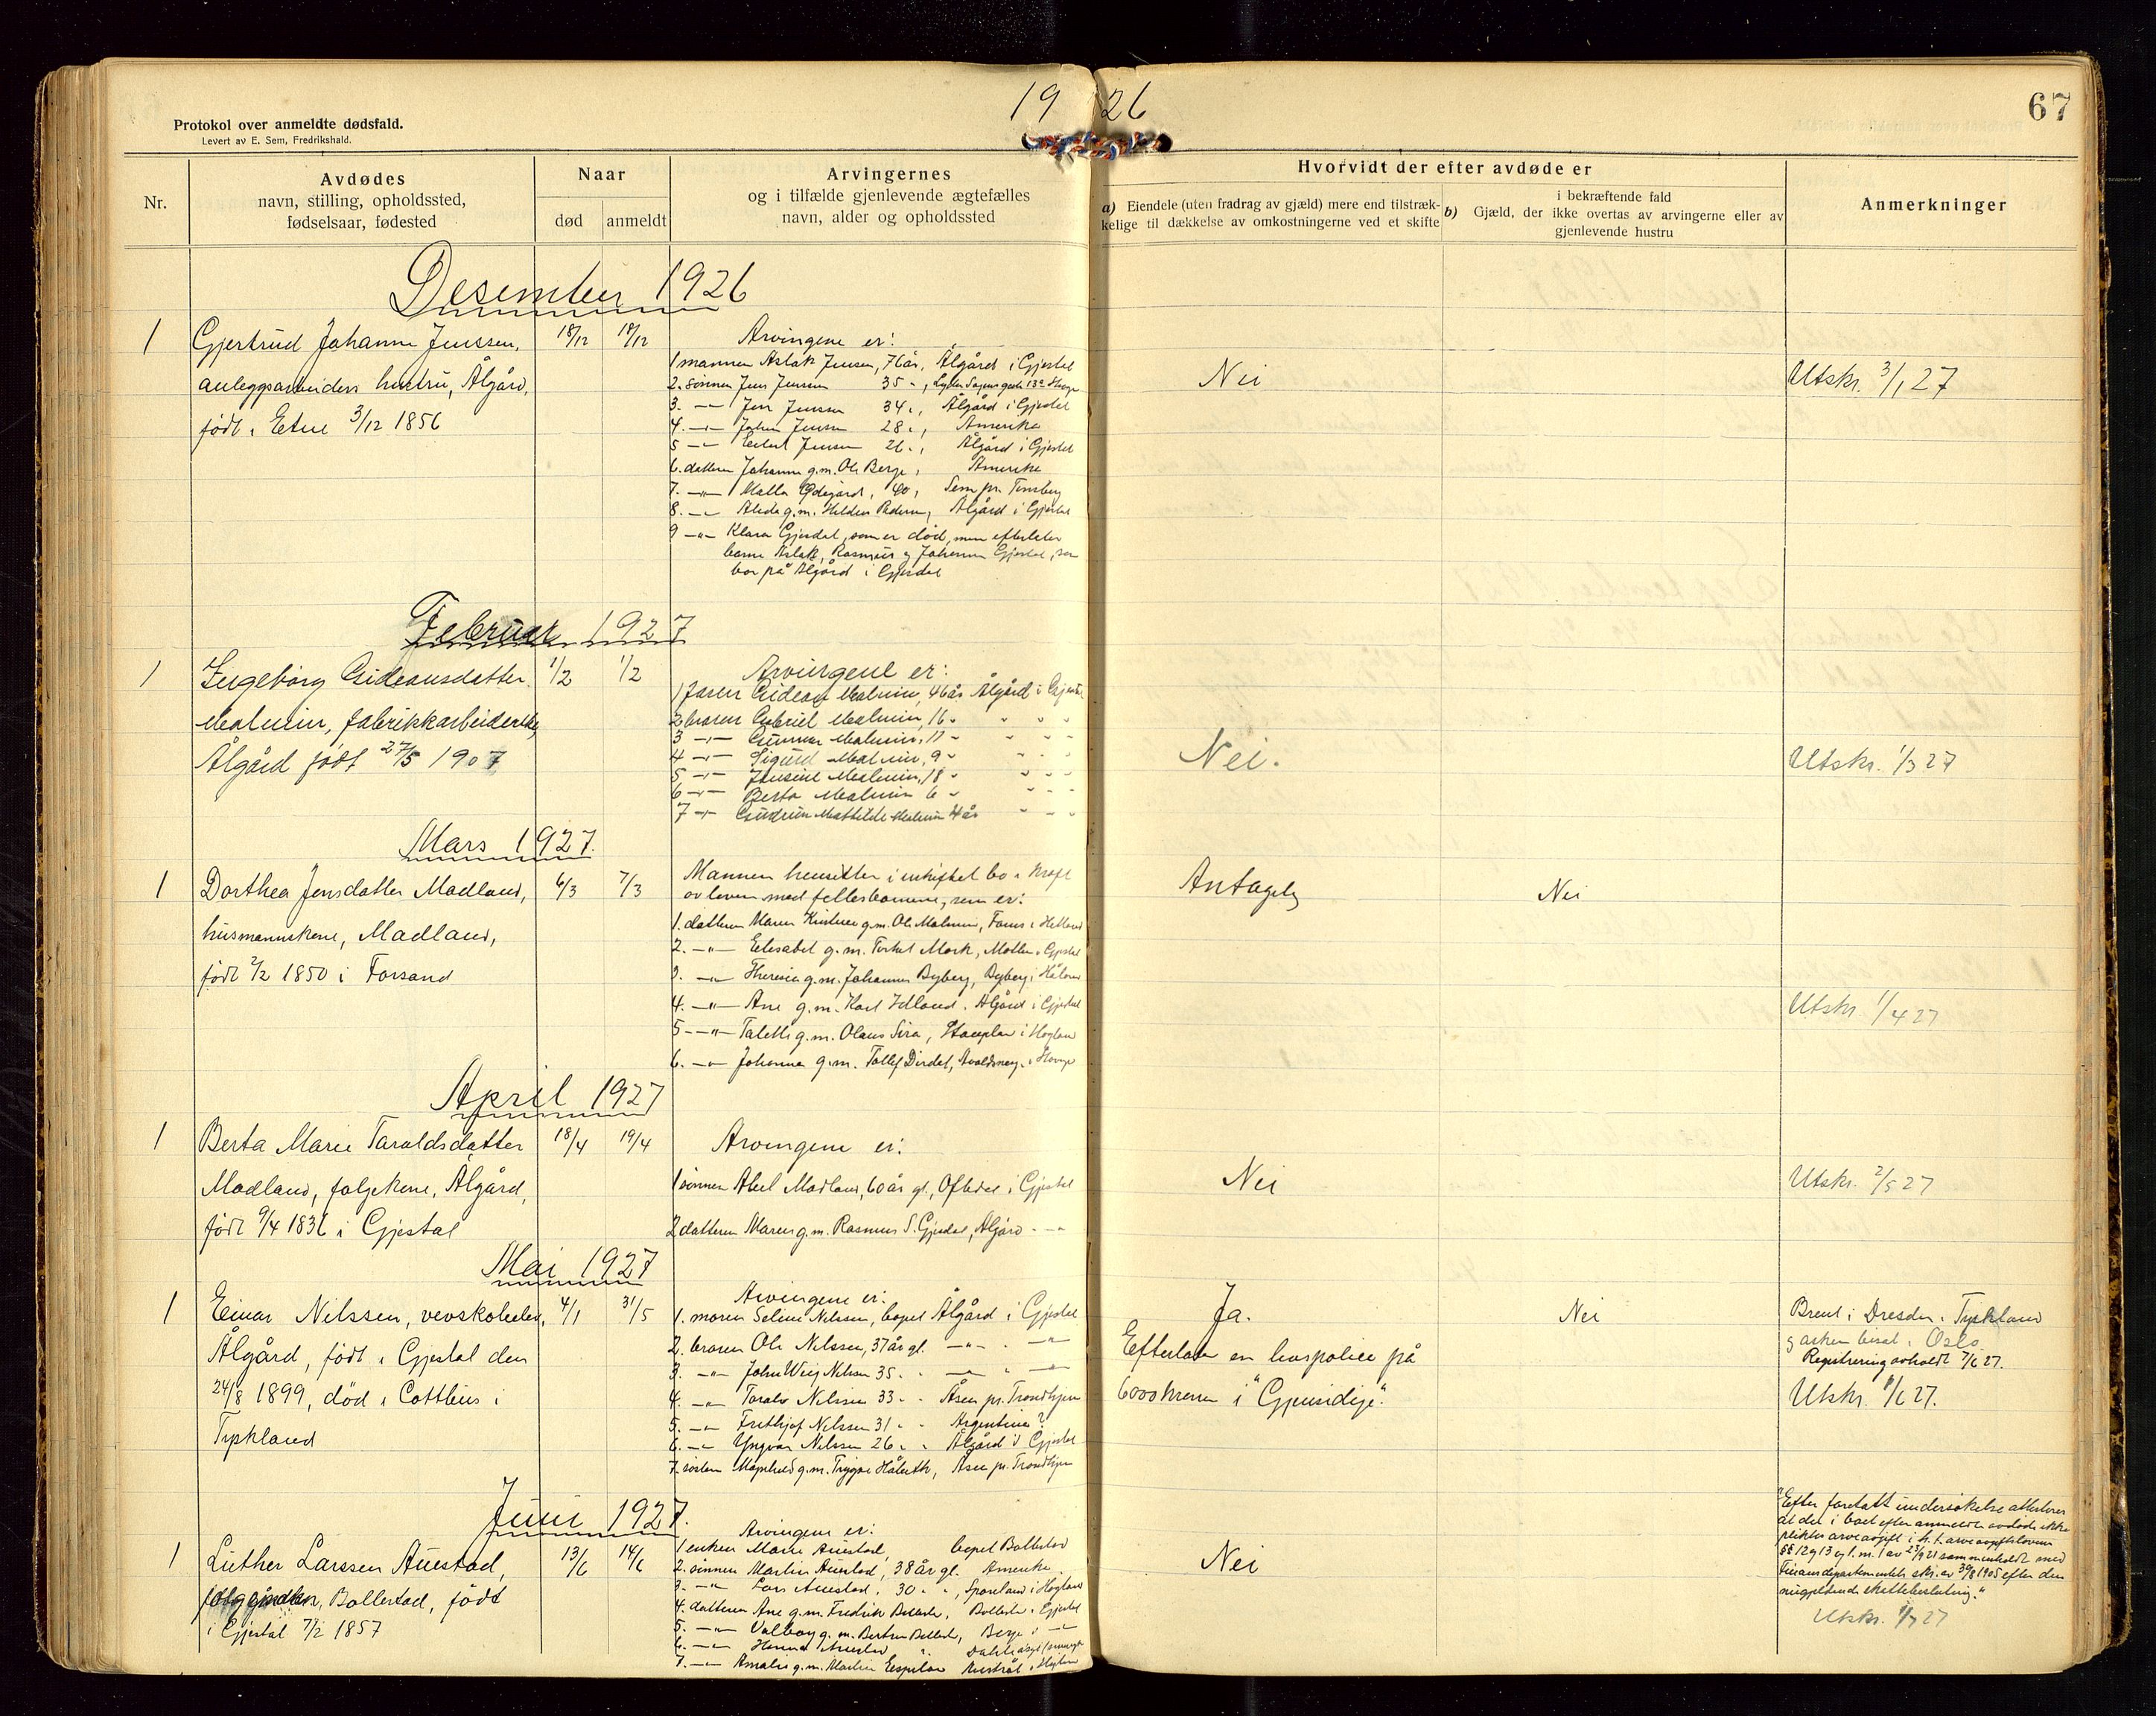 19 26
67
Protokol over anmeldte dødsfald.
Levert av E. Sem, Fredrikshald.
Nr.
Avdødes
navn, stilling, opholdssted,
fødselsaar, fødested
Naar
død
anmeldt
Arvingernes
og i tilfælde gjenlevende ægtefælles
navn, alder og opholdssted
Hvorvidt der efter avdøde er
a) Eiendele (uten fradrag av gjæld) mere end tilstræk-
kelige til dækkelse av omkostningerne ved et skifte
i bekræftende fald
b) Gjæld, der ikke overtas av arvingerne eller av
gjenlevende hustru
Anmerkninger
Desember 1926
1
Gjertrud Johanne Jenssen,
anleggsarbeiders hustru, Ålgård,
født i Etne 3/12 1856
18/12
18/12
Arvingene er:
1 mannen Aslak Jensen, 76 år, Ålgård i Gjestal
2. sønnen Jens Jenssen 35 "
3. —"— Jenssen 34 ", Ålgård i Gjestal
4. —"— Johan Jensen 28 ", Amerika
5 —"— Jensen 26 ", Ålgård i Gjestal
6. datteren Johanne g.m. Ole Berge, Amerika
7. —"— Malla Ødegård, 40, Sem pr. Tønsberg
8. —"— g.m. Ålgård i Gjestal
9 —"— Klara Gjesdal, som er død, men efterlater
barna Aslak, Rasmus og Johanne Gjesdal, som
bor på Ålgård i Gjesdal
Nei
Utskr. 3/1 27
Februar 1927
1
Ingeborg Gideonsdatter
Malmin, fabrikkarbeiderske
Ålgård født 27/5 1907
1/2
1/2
Arvingene er:
1 faren Gideon Malmin, 46 år Ålgård i Gjestal
2 broren Gabriel Malmin, 16 " " " "
3 —"— Gunnar Malmin, 11 " " " "
4 —"— Sigurd Malmin, 9 " " " "
5 —"— Jensine Malmin, 18 " " " "
6 —"— Berta Malmin 6 " " " "
7 —"— Gudrun Mathilde Malmin 4 år " " "
Nei.
Utskr. 1/3 27
Mars 1927.
1
Dorthea Jensdatter Madland,
husmannskone, Madland,
født 2/2 1850 i Forsand
6/3
7/3
Mannen hensitter i uskiftet bo i kraft
av loven med fellesbarnene, som er:
1. datteren Maren Kristine g.m. Ole Malmin, i Hetland
2. —"— Elisabet g.m. Torkel Mork, i Gjestal
3. —"— Theresia g.m. Johannes Byberg, Byberg i Håland
4. —"— Ane g.m. Karl Idland, Ålgård i Gjestal
5 —"— Talette g.m. Olaus Sira, i Høyland
6. —"— Johanna g.m. Tollef Dirdal, Avaldsnes
Antagelig
Nei
Utskr 1/4 27
April 1927
1
Berta Marie Taraldsdatter
Madland, følgekone, Ålgård,
født 9/4 1836 i Gjestal
18/4
19/4
Arvingene er:
1 sønnen Abel Madland, 60 år gl., Oftedal i Gjestal
2 datteren Maren g.m. Rasmus S. Gjesdal, Ålgård —"—
Nei
Utskr. 2/5 27
Mai 1927
1
Einar Nilssen, vevskoleelev,
Ålgård, født i Gjestal den
24/8 1899, død i Cottbus i
Tyskland
4/1
31/5
Arvingene er:
1. moren Seline Nilssen, bopel Ålgård i Gjestal
2. broren Ole Nilssen, 37 år gl. —"— " —"—
3. —"— John Nilssen 35 " " —"— " —"—
4. —"— Taralv Nilssen 33 " " Åsen pr. Trondhjem
5. —"— Frithjof Nilssen 31 " " Argentina ?
6. —"— Yngvar Nilssen 26 " " Ålgård i Gjestal
7. søsteren Magnhild g.m. Trygve Åsen pr. Trondhjem
Ja.
Efterlater en livspolice på
6000 kroner i "Gjensidige".
Nei
Brent i Dresden i Tyskland
og asken bisat i Oslo
Registrering avholdt 7/6 27.
Utskr. 9/6 27.
Juni 1927.
1
Luther Larssen Auestad,
Bollestad, født
i Gjestal 7/2 1857
13/6
14/6
Arvingene er:
1 enken Marie Auestad, bopel Bollestad
2. sønnen Martin Auestad, 38 år gl. Amerika
3. —"— Lars Auestad, 30 " ", i Høyland
4. datteren Ane g.m. Fredrik Bollestad, Bollestad i Gjestal
5. —"— Valborg g.m. Bertin Bollestad, Berge i —"—
6. —"— Auestad
7. —"— Amalie g.m. Martin Espeland i Høyland
Nei
"Efter foretatt undersøkelse attesteres
at det i boet efter anmeldte avdøde ikke
pliktes arveavgift i h.t. arveavgiftsloven
§§ 12 og 13 sammenholdt med
Finansdepartementets skr. av 30/8 1905 efter den
nugjeldende skattebeslutning."
Utskr. 1/7 27